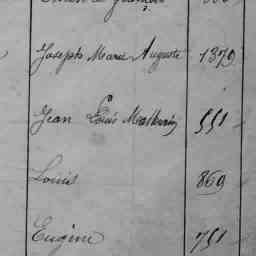 Joseph Marie Auguste 1379
Jean Louis 551
Louis 869
Eugène 751